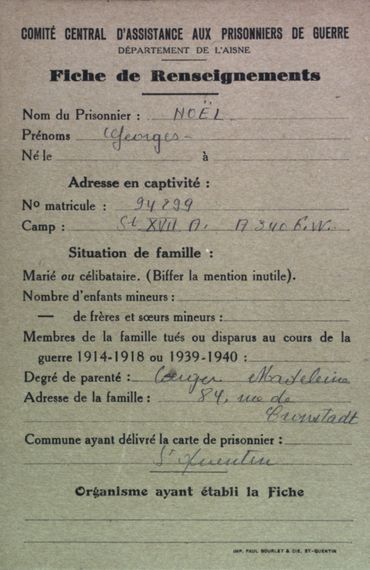 COMITÉ CENTRAL D'ASSISTANCE AUX PRISONNIERS DE GUERRE
DÉPARTEMENT DE L'AISNE
Fiche de Renseignements
Nom du Prisonnier : NOËL
Prénoms Georges
Né le à
Adresse en captivité :
No matricule : 94899
Camp : St XVII A. A 340 G.W.
Situation de famille :
Marié ou célibataire. (Biffer la mention inutile).
Nombre d'enfants mineurs :
— de frères et sœurs mineurs :
Membres de la famille tués ou disparus au cours de la
guerre 1914-1918 ou 1939-1940 :
Degré de parenté : Madeleine
Adresse de la famille : 84, rue de
Cronstadt
Commune ayant délivré la carte de prisonnier :
St Quentin
Organisme ayant établi la Fiche
IMP. PAUL BOURLET & CIE, ST-QUENTIN